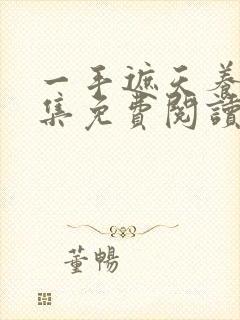 一手遮天養
集免費閱讀
董暢